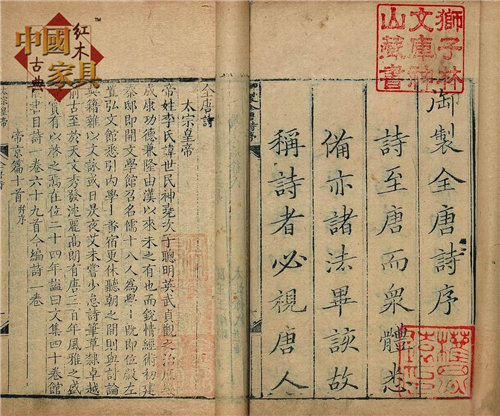 御製全唐詩序
詩至唐而衆體悉
備亦諸法畢該故
稱詩者必視唐人
獅子林
文庫
山藏書
全唐詩
太宗皇帝
帝姓李氏諱世民神堯次子聰明英武貞觀之治庶幾
成康功德兼隆由漢以來未之有也而銳情經術初建
秦邸即開文學館召名儒十八人為學士既即位殿左
置弘文館悉引內學士番宿更休聽朝之間則與討論
典籍雜以文詠或日昃夜艾未嘗少怠詩筆草隸卓越
前古至於天文秀發沈麗高朗有唐三百年風雅之盛
實有以啓之焉在位二十四年諡曰文集四十卷館
書目詩一卷六十九首今編詩一卷
帝京篇十首并序
太宗皇帝
中國
古典
紅木
家具